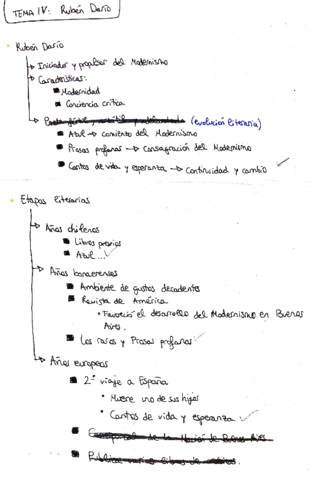 TEMA IV: Rubén Darío
Rubén Darío
Iniciador y propulsor del Modernismo
Características:
Modernidad
Conciencia crítica
(evolución literaria)
Azul → comienzo del Modernismo
Prosas profanas → Consagración del Modernismo
Cantos de vida y esperanza → Continuidad y cambio
Etapas literarias
Años chilenos
Libros previos
Azul...
Años bonaerenses
Ambiente de gustos decadentes
Revista de América
Favoreció el desarrollo del Modernismo en Buenos
Aires.
Los raros y Prosas profanas
Años europeos
2º viaje a España
Muere uno de sus hijos
Cantos de vida y esperanza